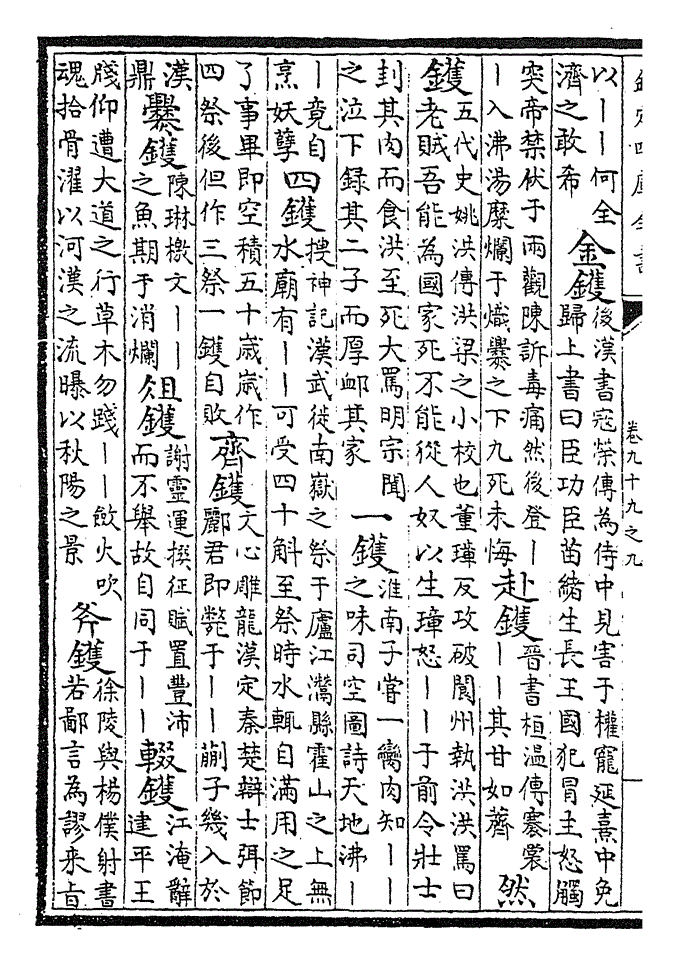 欽定四庫全書
卷九十九之九
以丨丨何全濟之敢希 金鑊 後漢書寇榮傳為侍中見害于權寵延熹中免歸上書曰臣功臣苗緒生長王國犯冒主怒觸
突帝禁伏于兩觀陳訴毒痛然後登丨丨入沸湯糜爛于熾爨之下九死未悔 赴鑊 晉書桓溫傳褰裳丨丨其甘如薺 然
鑊 五代史姚洪傳洪梁之小校也董璋反攻破閬州執洪洪罵曰老賊吾能為國家死不能從人奴以生璋怒丨丨于前令壯士
刲其肉而食洪至死大罵明宗聞之泣下録其二子而厚䘏其家 一鑊 淮南子嘗一臠肉知丨丨之味司空圖詩天地沸丨
丨竟自烹妖孽 四鑊 搜神記漢武徙南嶽之祭于廬江灊縣霍山之上無水廟有丨丨可受四十斛至祭時水輒自滿用之足
了事畢即空積五十歲歲作四祭後但作三祭一鑊自敗 齊鑊 文心雕龍漢定秦楚辯士弭節酈君即斃于丨丨蒯子幾入於
漢鼎 爨鑊 陳琳檄文丨丨之魚期于消爛 俎鑊 謝靈運撰征賦置豐沛而不舉故自同于丨丨 輟鑊 江淹辭建平王
牋仰遭大道之行草木勿踐丨丨斂火吹魂拾骨濯以河漢之流曝以秋陽之景 斧鑊 徐陵與楊僕射書若鄙言為謬來旨